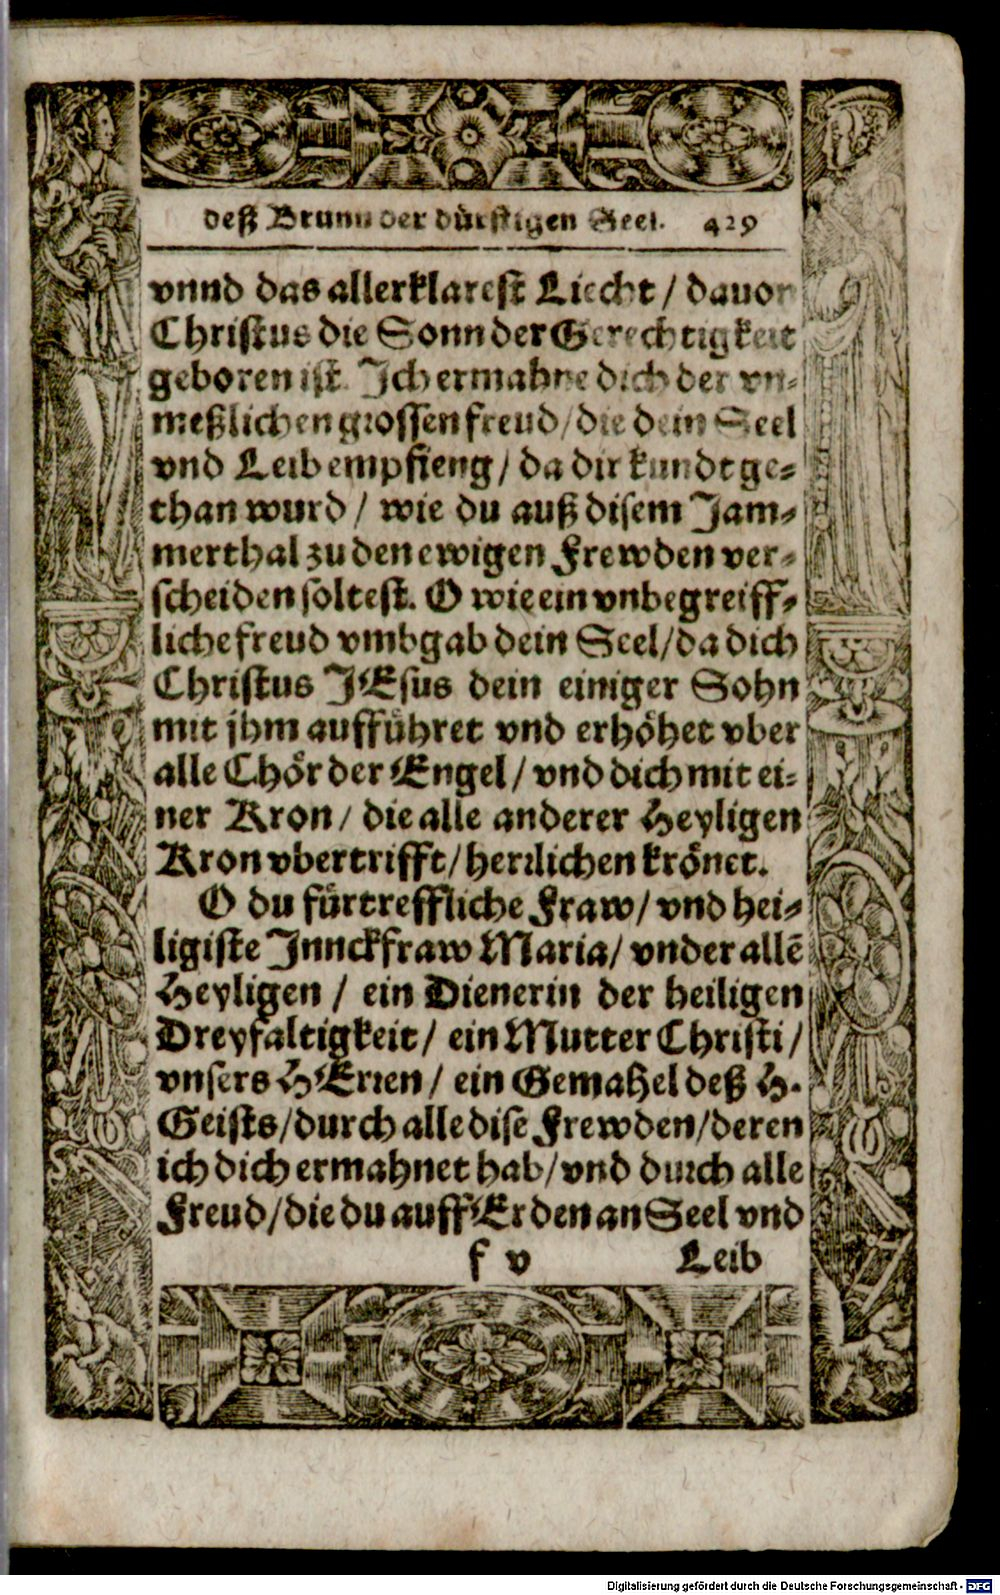 deß Brunn der dürstigen Seel. 429
vnnd das allerklarest Liecht / dauon
Christus die Sonn der Gerechtigkeit
geboren ist. Ich ermahne dich der vn⸗
meßlichen grossen freud / die dein Seel
vnd Leib empfieng / da dir kundt ge⸗
than wurd / wie du auß disem Jam⸗
merthal zu den ewigen Frewden ver⸗
scheiden soltest. O wie ein vnbegreiff⸗
liche freud vmbgab dein Seel / da dich
Christus JEsus dein einiger Sohn
mit jhm auffführet vnd erhöhet vber
alle Chör der Engel / vnd dich mit ei⸗
ner Kron / die alle anderer Heyligen
Kron vbertrifft / herrlichen krönet.
O du fürtreffliche Fraw / vnd hei⸗
ligiste Junckfraw Maria / vnder allē
Heyligen / ein Dienerin der heiligen
Dreyfaltigkeit / ein Mutter Christi /
vnsers HErren / ein Gemahel deß H.
Geists / durch alle dise Frewden / deren
ich dich ermahnet hab / vnd durch alle
Freud / die du auff Erden an Seel vnd
f v Leib
Digitalisierung gefördert durch die Deutsche Forschungsgemeinschaft - DFG